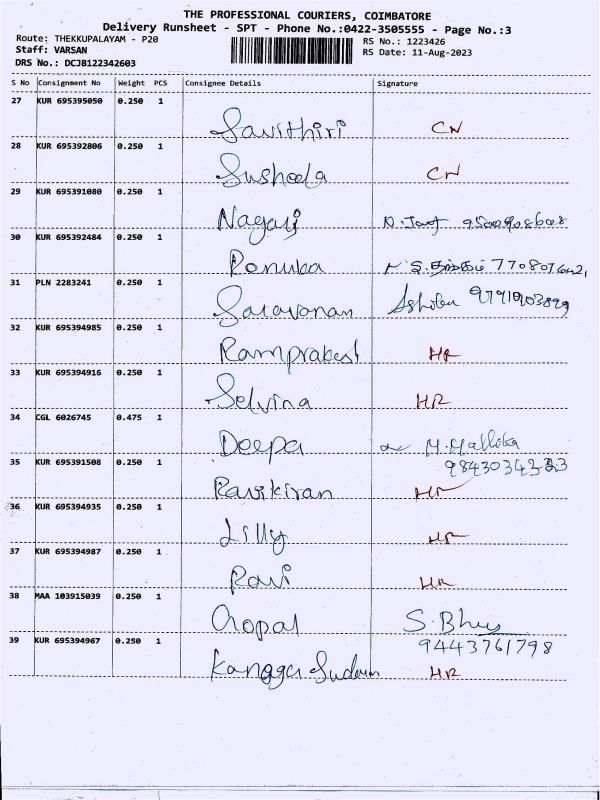 THE PROFESSIONAL COURIERS, COIMBATORE
Delivery Runsheet - SPT - Phone No.:0422-3505555 - Page No.:3
Route: THEKKUPALAYAM - P20 RS No.: 1223426
Staff: VARSAN RS Date: 11-Aug-2023
DRS No.: DCJB122342603
S No Consignment No Weight PCS Consignee Details Signature
27 KUR 695395050 0.250 1
Savithiri CN
28 KUR 695392806 0.250 1
Susheela CN
29 KUR 695391080 0.250 1
Nagaraj
30 KUR 695392484 0.250 1
Renuka
31 PLN 2283241 0.250 1
Saravanan
32 KUR 695394985 0.250 1
Ramprakash HR
33 KUR 695394916 0.250 1
Selvina HR
34 CGL 6026745 0.475 1
Deepa M.Mallika
35 KUR 695391508 0.250 1
Ravikiran HR
36 KUR 695394935 0.250 1
Lilly HR
37 KUR 695394987 0.250 1
Ravi HR
38 MAA 103915039 0.250 1
Gopal S.Bhus
39 KUR 695394967 0.250 1 9443761798
HR